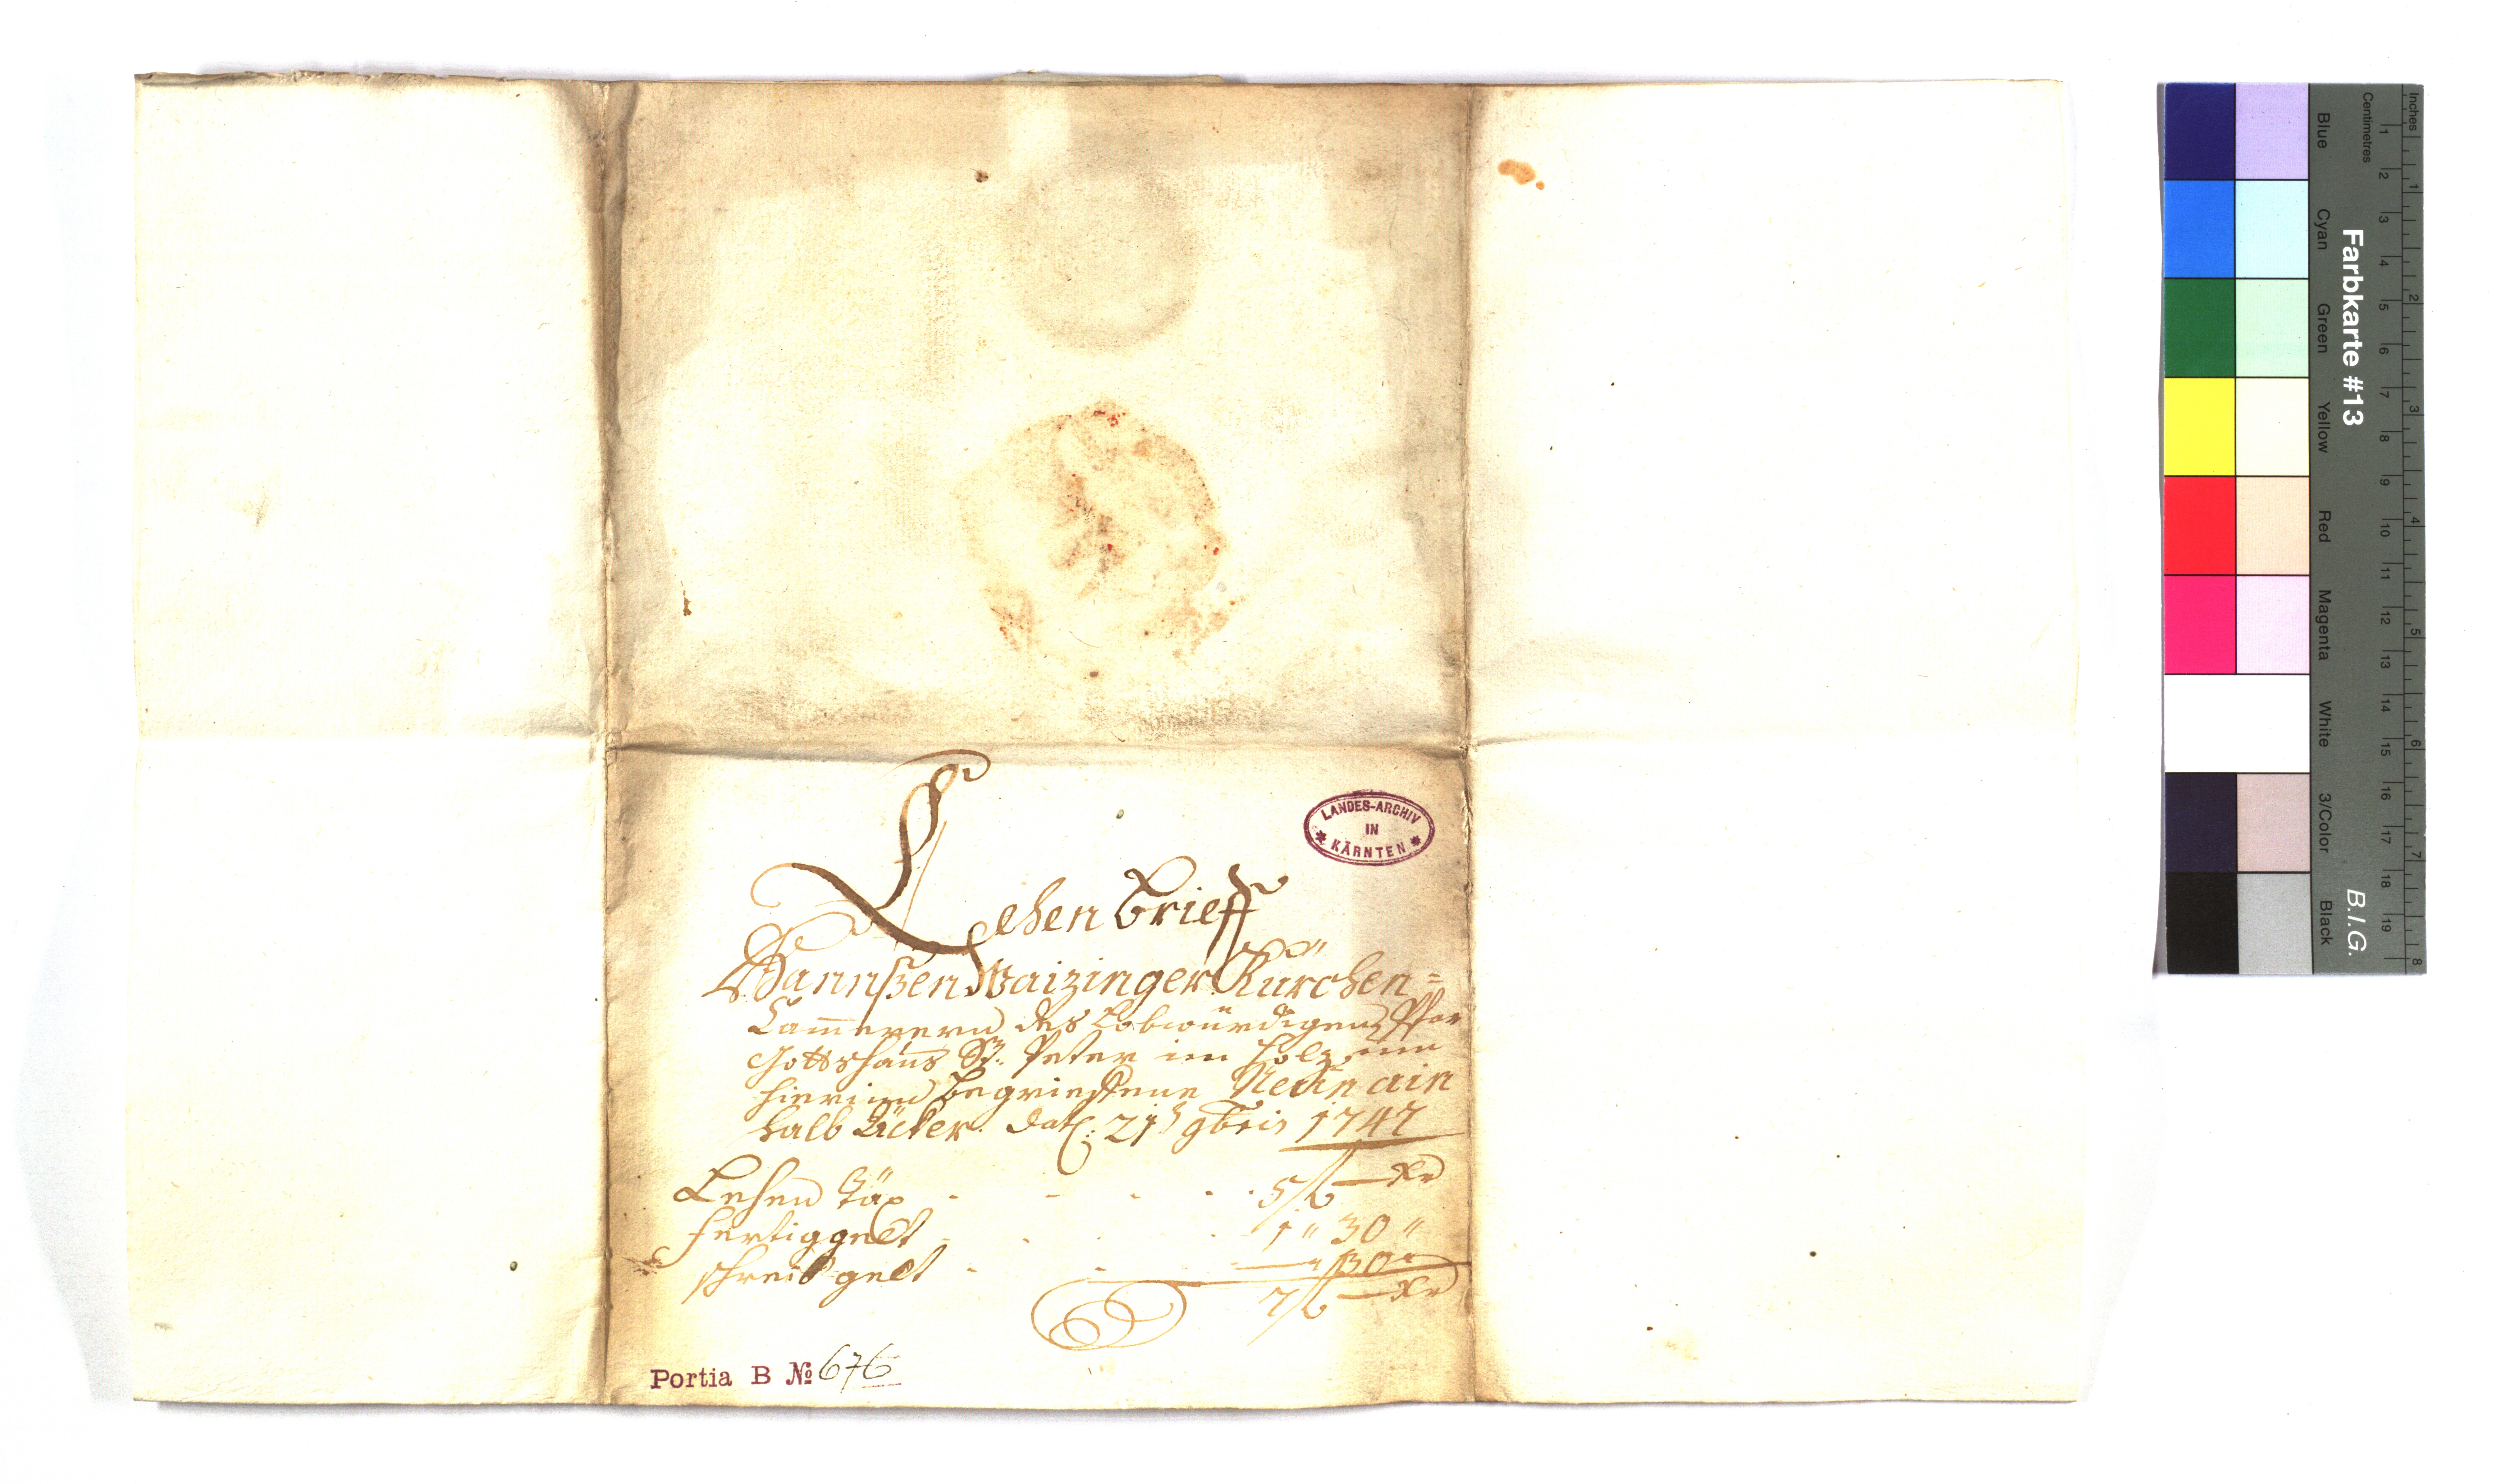 LANDES-ARCHIV
IN
KÄRNTEN
Lehen Brieff
Hannßen Waizinger Kürchen=
Camerern des Lobwürdigen Pfar
Gottshaus St: Peter im Holz umb
hierinen begrieffene Neün ain
halb Äcker. dat: 21t 9bris 1747
Lehen Tax - - - - 5 f — Xr
Fertiggelt - - - 1 " 30 "
schreib gelt - - — " 30 "
7 f — Xr
Portia B № 676
Farbkarte #13
B.I.G.
Inches
Centimetres
Blue
Cyan
Green
Yellow
Red
Magenta
White
3/Color
Black
1 2 3 4 5 6 7 8 9 10 11 12 13 14 15 16 17 18 19
1 2 3 4 5 6 7 8